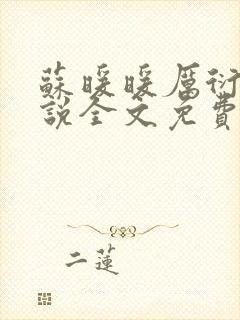 蘇暖暖厲衍
說全文免費
二蓮